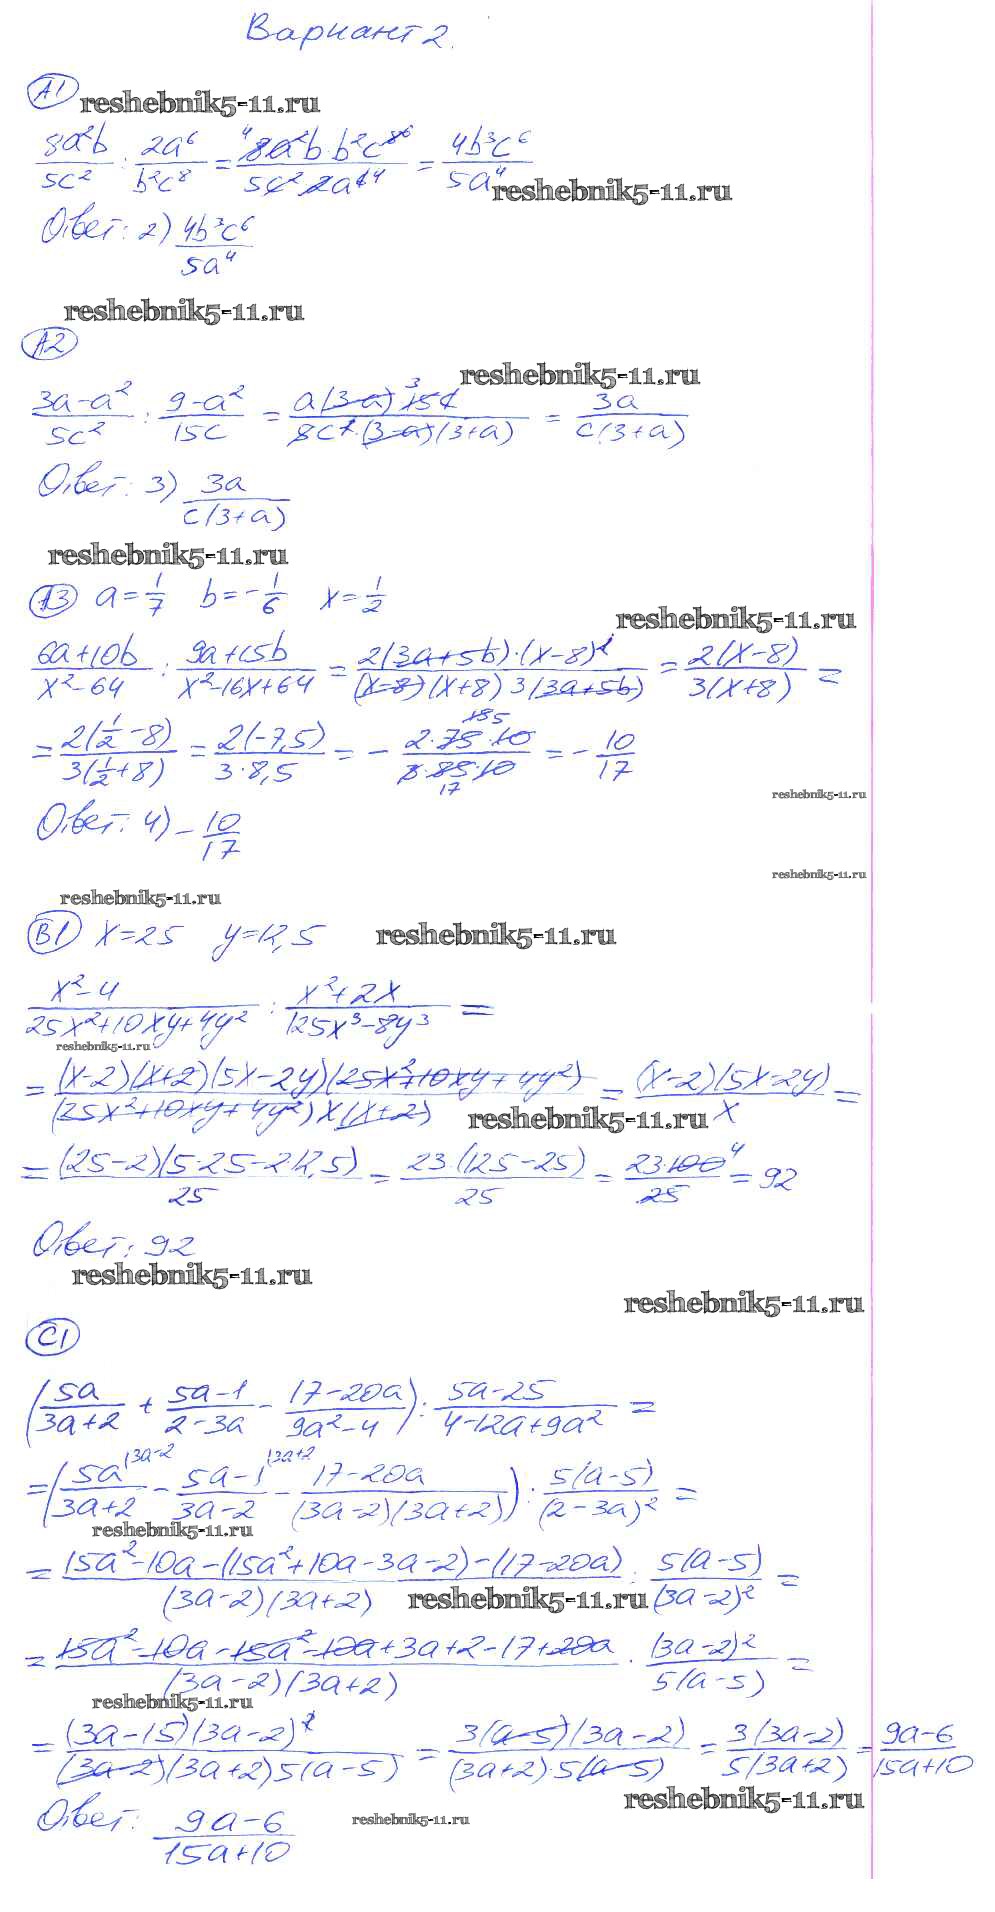 Вариант 2.
А1
reshebnik5-11.ru
8a²b/5c² : 2a⁶/b²c⁸ = 8a²b·b²c⁸/5c²·2a⁶ = 4b³c⁶/5a⁴
reshebnik5-11.ru
Ответ: 2) 4b³c⁶/5a⁴
reshebnik5-11.ru
А2
reshebnik5-11.ru
(3a-a²)/5c² : (9-a²)/15c = a(3-a)·15c/5c²·(3-a)(3+a) = 3a/c(3+a)
Ответ: 3) 3a/c(3+a)
reshebnik5-11.ru
А3 a=1/7 b=-1/6 x=1/2
reshebnik5-11.ru
(6a+10b)/(x²-64) : (9a+15b)/(x²-16x+64) = 2(3a+5b)·(x-8)²/(x-8)(x+8)3(3a+5b) = 2(x-8)/3(x+8) =
= 2(1/2-8)/3(1/2+8) = 2(-7,5)/3·8,5 = - 2·75·10/3·85·10 = - 10/17
reshebnik5-11.ru
Ответ: 4) - 10/17
reshebnik5-11.ru
reshebnik5-11.ru
В1 x=25 y=12,5
reshebnik5-11.ru
(x²-4)/(25x²+10xy+4y²) : (x²+2x)/(125x³-8y³) =
reshebnik5-11.ru
= (x-2)(x+2)(5x-2y)(25x²+10xy+4y²)/(25x²+10xy+4y²)x(x+2) = (x-2)(5x-2y)/x =
reshebnik5-11.ru
= (25-2)(5·25-2·12,5)/25 = 23·(125-25)/25 = 23·100/25 = 92
Ответ: 92
reshebnik5-11.ru
reshebnik5-11.ru
С1
(5a/(3a+2) + (5a-1)/(2-3a) - (17-20a)/(9a²-4)) : (5a-25)/(4-12a+9a²) =
= (5a|3a-2/(3a+2) - (5a-1)|3a+2/(3a-2) - (17-20a)/(3a-2)(3a+2)) : 5(a-5)/(2-3a)² =
reshebnik5-11.ru
= (15a²-10a-(15a²+10a-3a-2)-(17-20a))/(3a-2)(3a+2) : 5(a-5)/(3a-2)² =
reshebnik5-11.ru
= (15a²-10a-15a²-10a+3a+2-17+20a)/(3a-2)(3a+2) · (3a-2)²/5(a-5) =
reshebnik5-11.ru
= (3a-15)(3a-2)²/(3a-2)(3a+2)5(a-5) = 3(a-5)(3a-2)/(3a+2)·5(a-5) = 3(3a-2)/5(3a+2) = (9a-6)/(15a+10)
reshebnik5-11.ru
Ответ: (9a-6)/(15a+10)
reshebnik5-11.ru